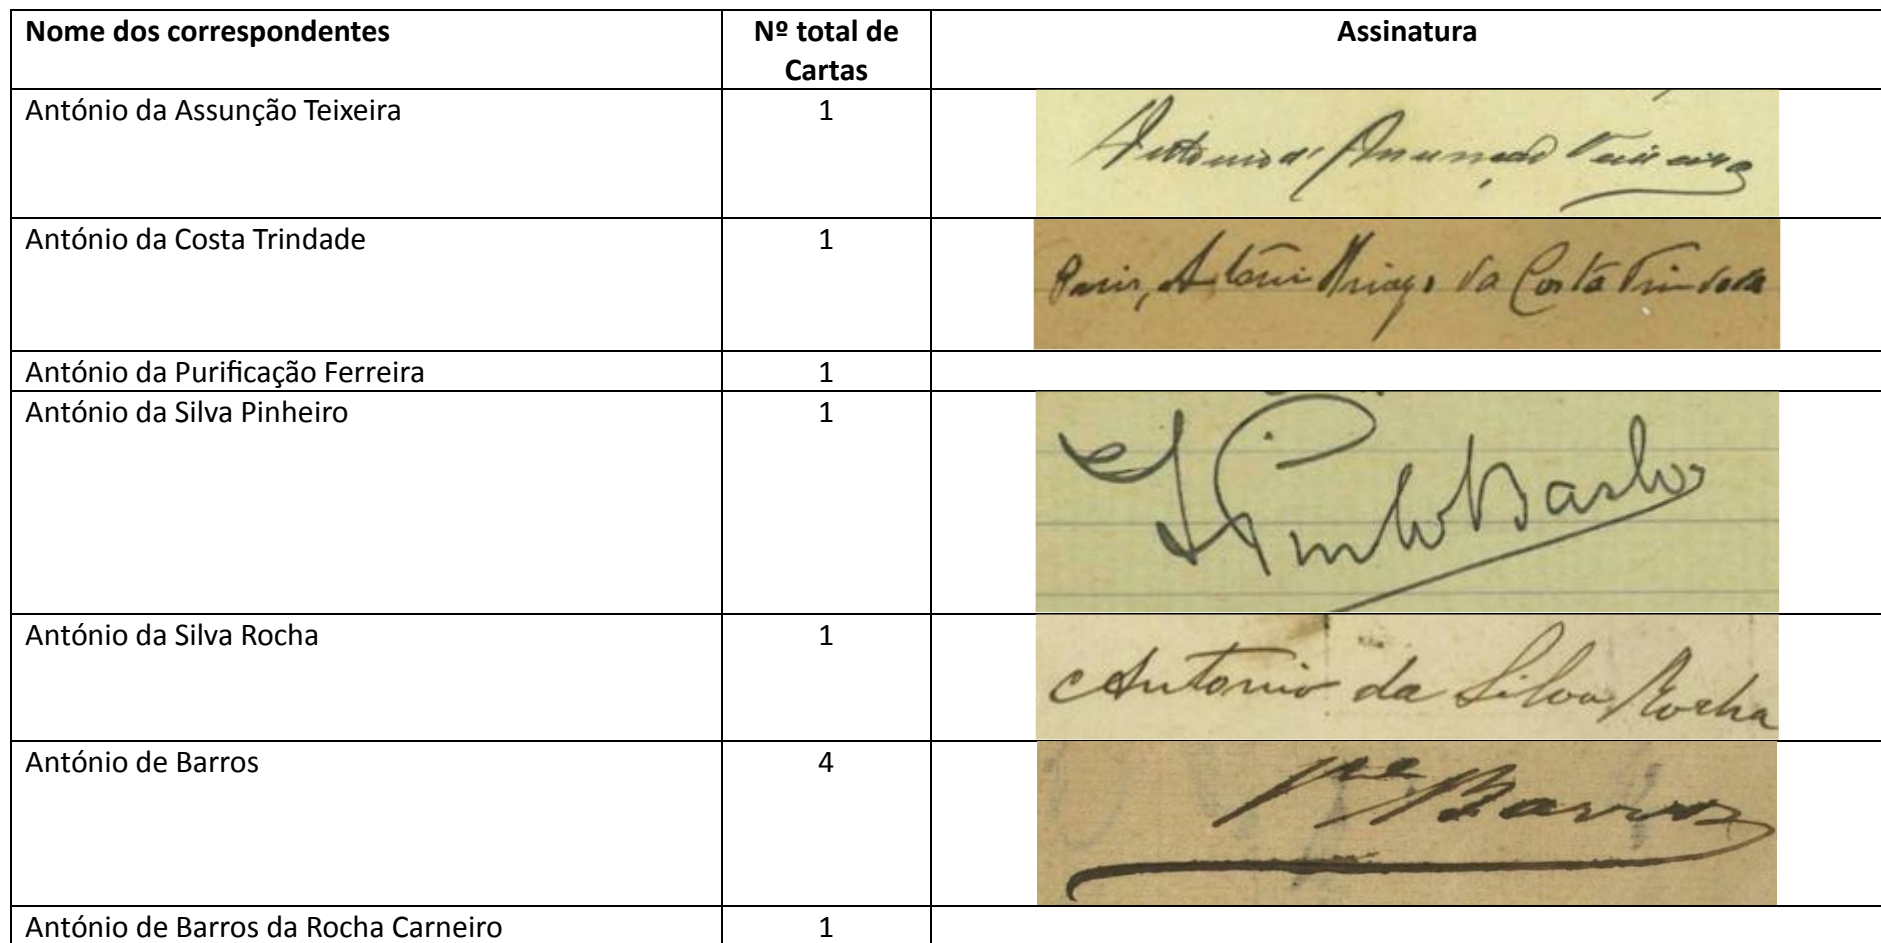 Nome dos correspondentes
Nº total de Cartas
Assinatura
António da Assunção Teixeira
1
Antonio d'Assumpção Teixeira
António da Costa Trindade
1
da Costa Trindade
António da Purificação Ferreira
1
António da Silva Pinheiro
1
Pinto Basto
António da Silva Rocha
1
Antonio da Silva Rocha
António de Barros
4
Pe Barros
António de Barros da Rocha Carneiro
1